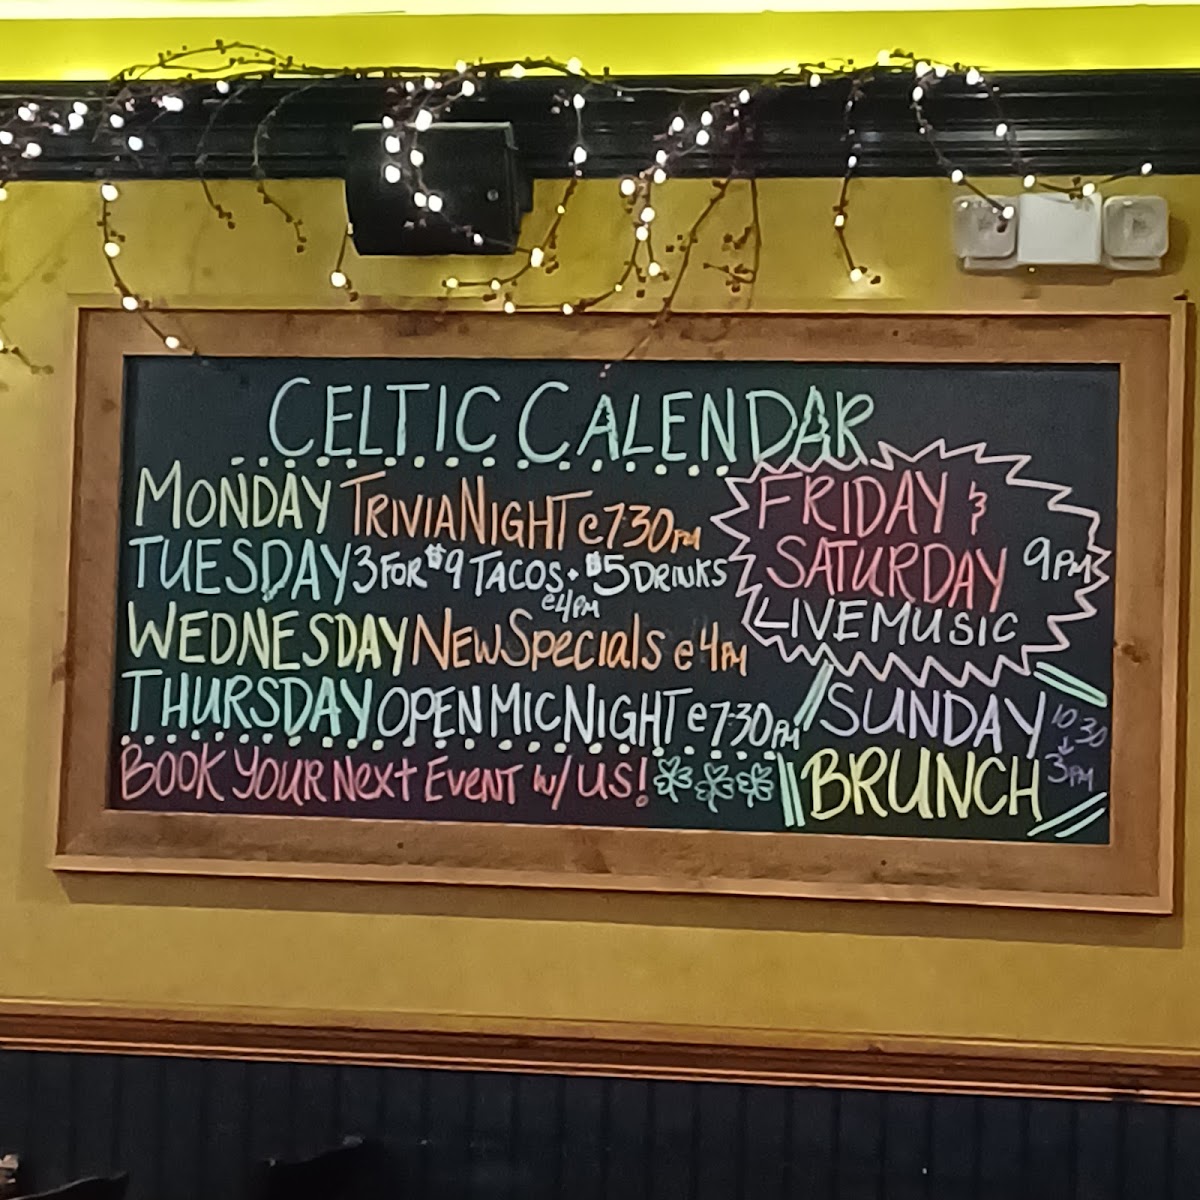 CELTIC CALENDAR
MONDAY TRIVIA NIGHT @ 7:30PM
TUESDAY 3 FOR $9 TACOS + $5 DRINKS
@4PM
WEDNESDAY NEW SPECIALS @ 4PM
THURSDAY OPEN MIC NIGHT @ 7:30PM
BOOK YOUR NEXT EVENT W/ US!
FRIDAY &
SATURDAY 9PM
LIVE MUSIC
SUNDAY 10:30
BRUNCH 3PM